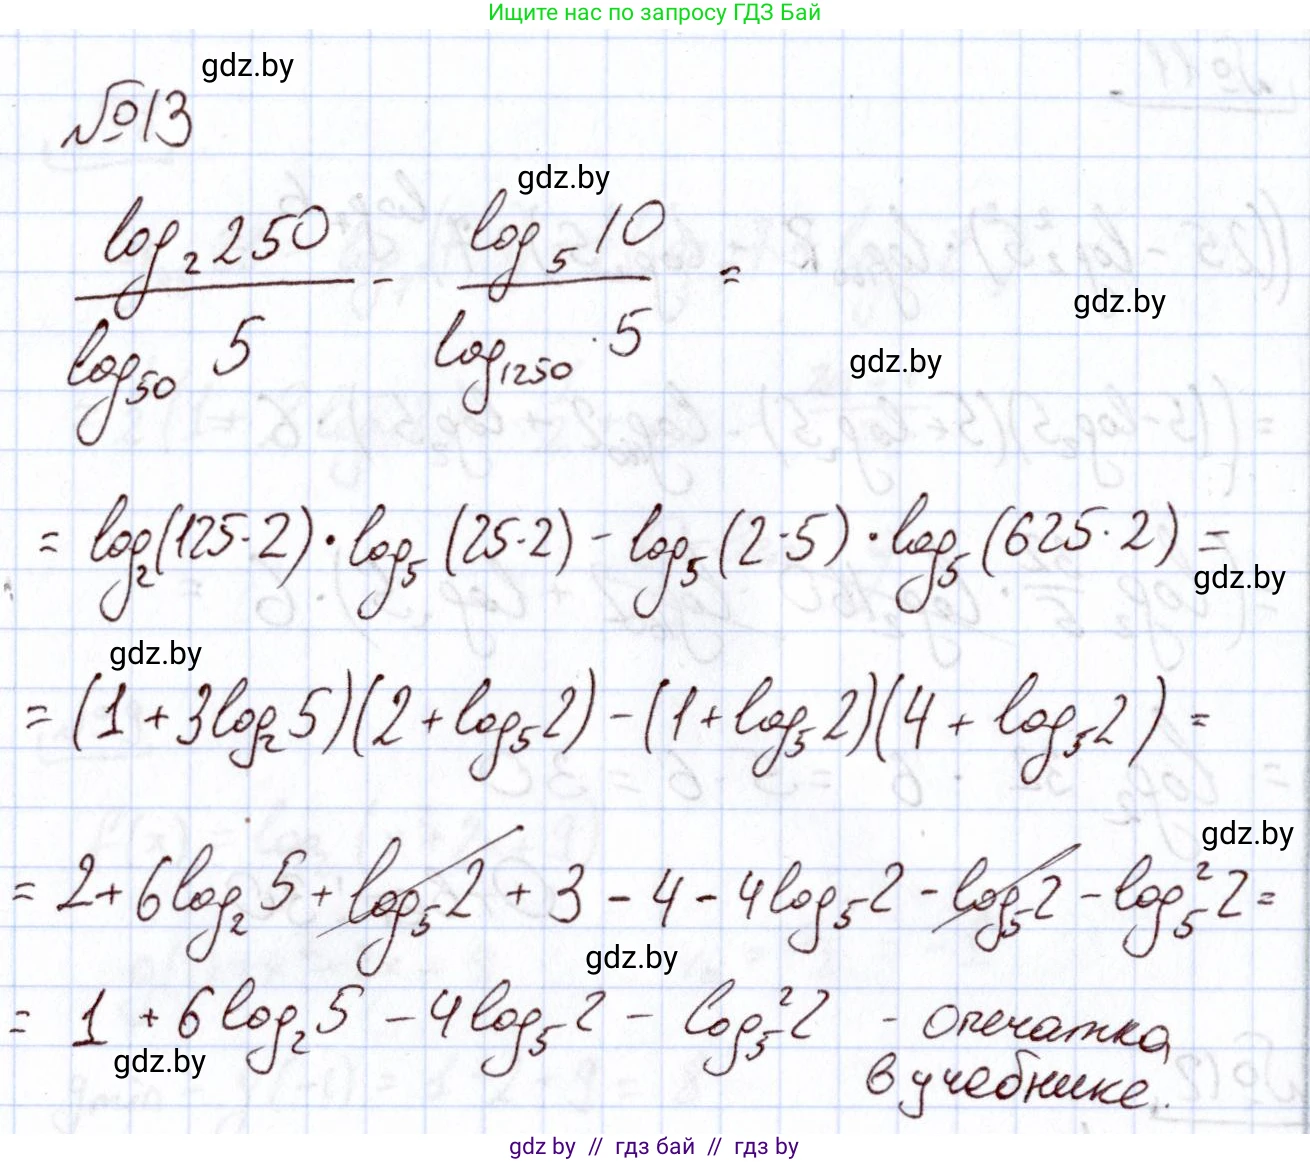 Ищите нас по запросу ГДЗ Бай
gdz.by
№13
gdz.by
log₂250 / log₅₀ 5 - log₅10 / log₁₂₅₀ · 5 =
gdz.by
gdz.by
= log₂(125·2)·log₅(25·2) - log₅(2·5)·log₅(625·2) =
gdz.by
gdz.by
= (1+3log₂5)(2+log₅2) - (1+log₅2)(4+log₅2) =
gdz.by
= 2+6log₂5+log₅2+3-4-4log₅2-log₅2-log₅²2=
gdz.by
= 1+6log₂5-4log₅2-log₅²2 - опечатка
gdz.by
в учебнике.
gdz by // гдз бай // гдз by